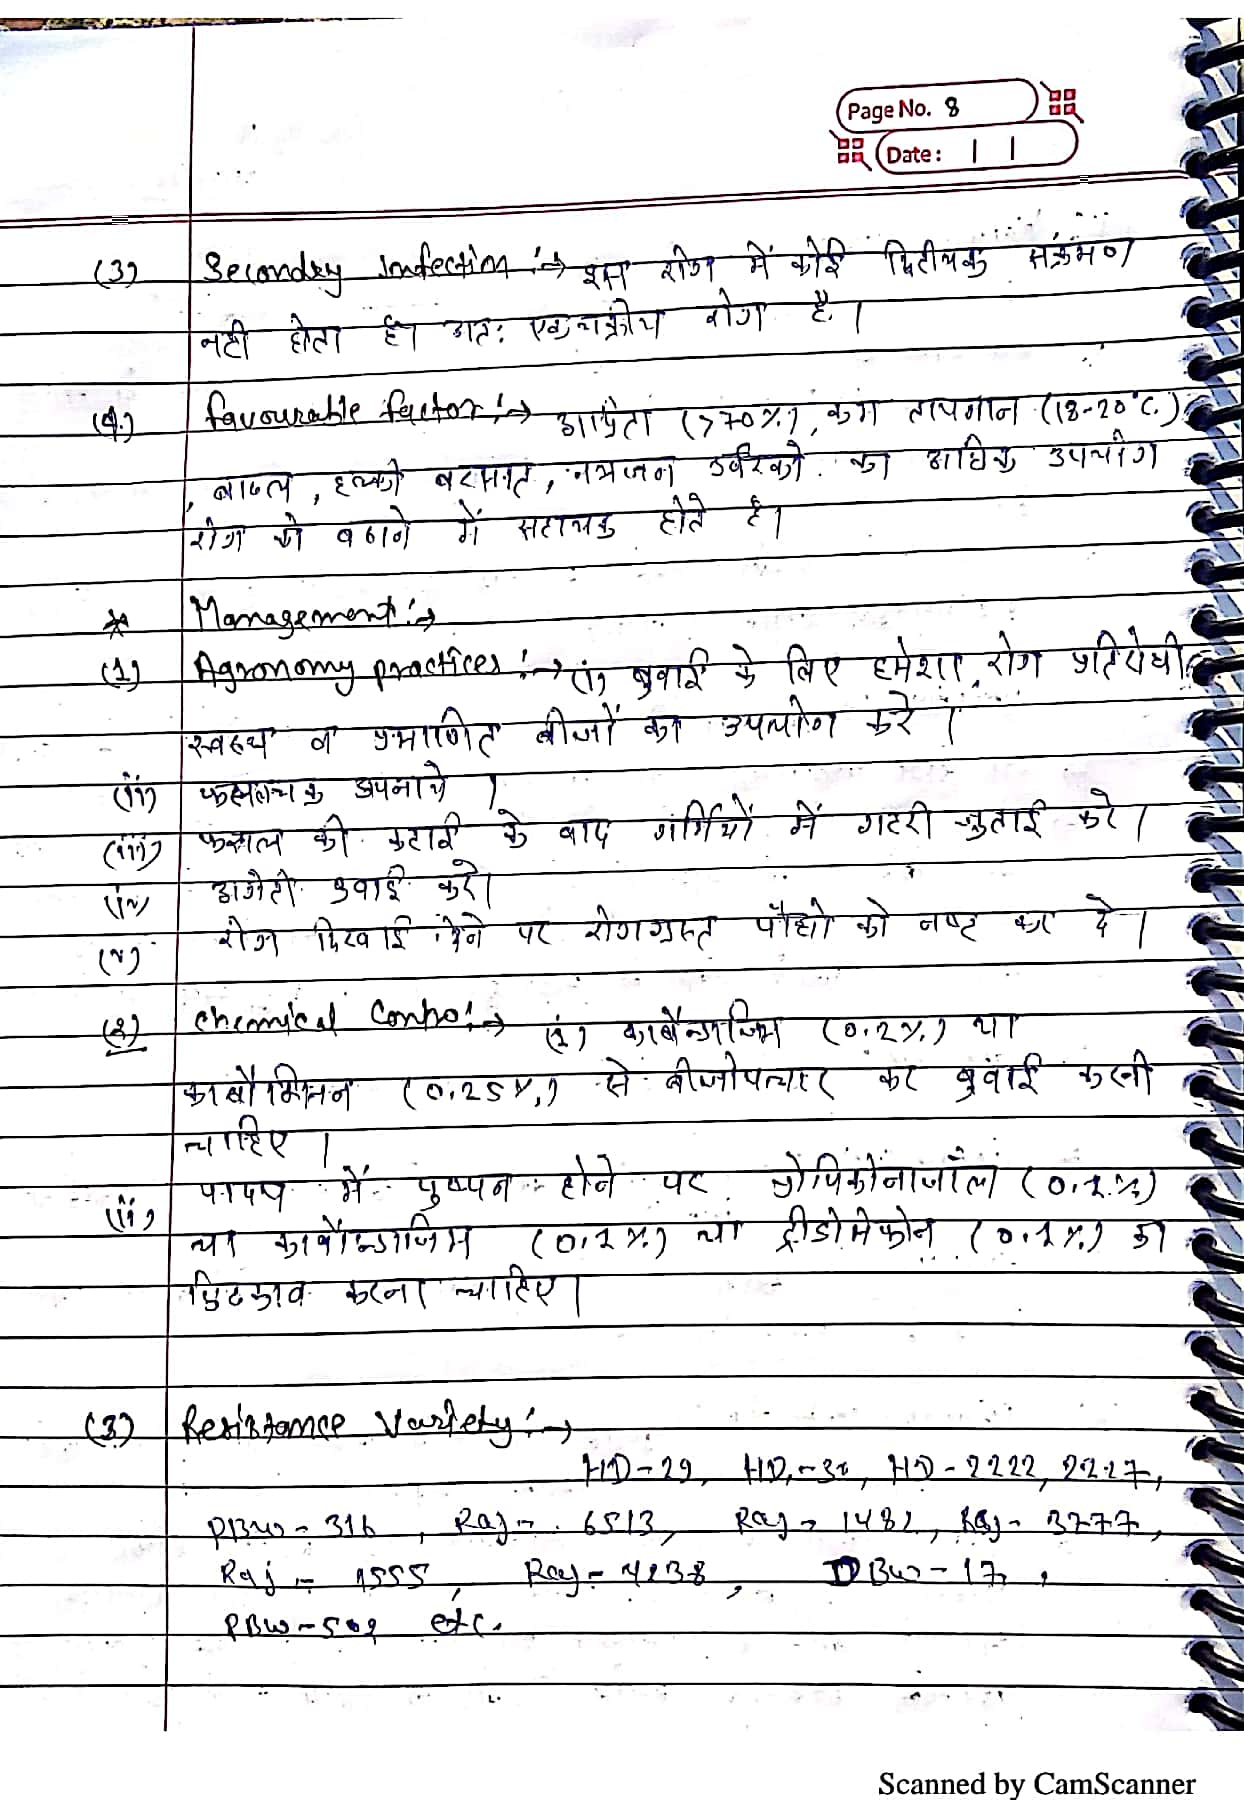 Page No. 8
Date: | |
(3) Secondry Infection :→ इस रोग में कोई द्वितीयक संक्रमण
नही होता है। अत: एकचक्रीय रोग है।
(4.) favourable factor :→ आर्द्रता (>70%), कम तापमान (18-20°C.)
, बादल, हल्की बरसात, नत्रजन उर्वरको का अधिक उपयोग
रोग को बढाने में सहायक होते है।
* Management :→
(1) Agronomy practices :→ (i) बुवाई के लिए हमेशा रोग प्रतिरोधी
स्वस्थ व प्रमाणित बीजों का उपयोग करे।
(ii) फसलचक्र अपनाये।
(iii) फसल की कटाई के बाद गर्मियों में गहरी जुताई करे।
(iv) अगेती बुवाई करे।
(v) रोग दिखाई देने पर रोगग्रस्त पौधो को नष्ट कर दे।
(2) Chemical :→ (i) कार्बेन्डाजिम (0.2%) या
(0.25%) से बीजोपचार कर बुवाई करनी
चाहिए।
(ii) पादप में पुष्पन होने पर प्रोपिकोनाजोल (0.1%)
या कार्बेन्डाजिम (0.1%) या ट्रीडोमेफोन (0.1%) का
छिटकाव करना चाहिए।
(3) Resistance Variety :→
HD-29, HD-30, HD-2222, 2227,
PBW-316, Raj- 6513, Raj- 1482, Raj- 3777,
Raj- 1555, Raj- 4238, DBW-17,
PBW-502 etc.
Scanned by CamScanner